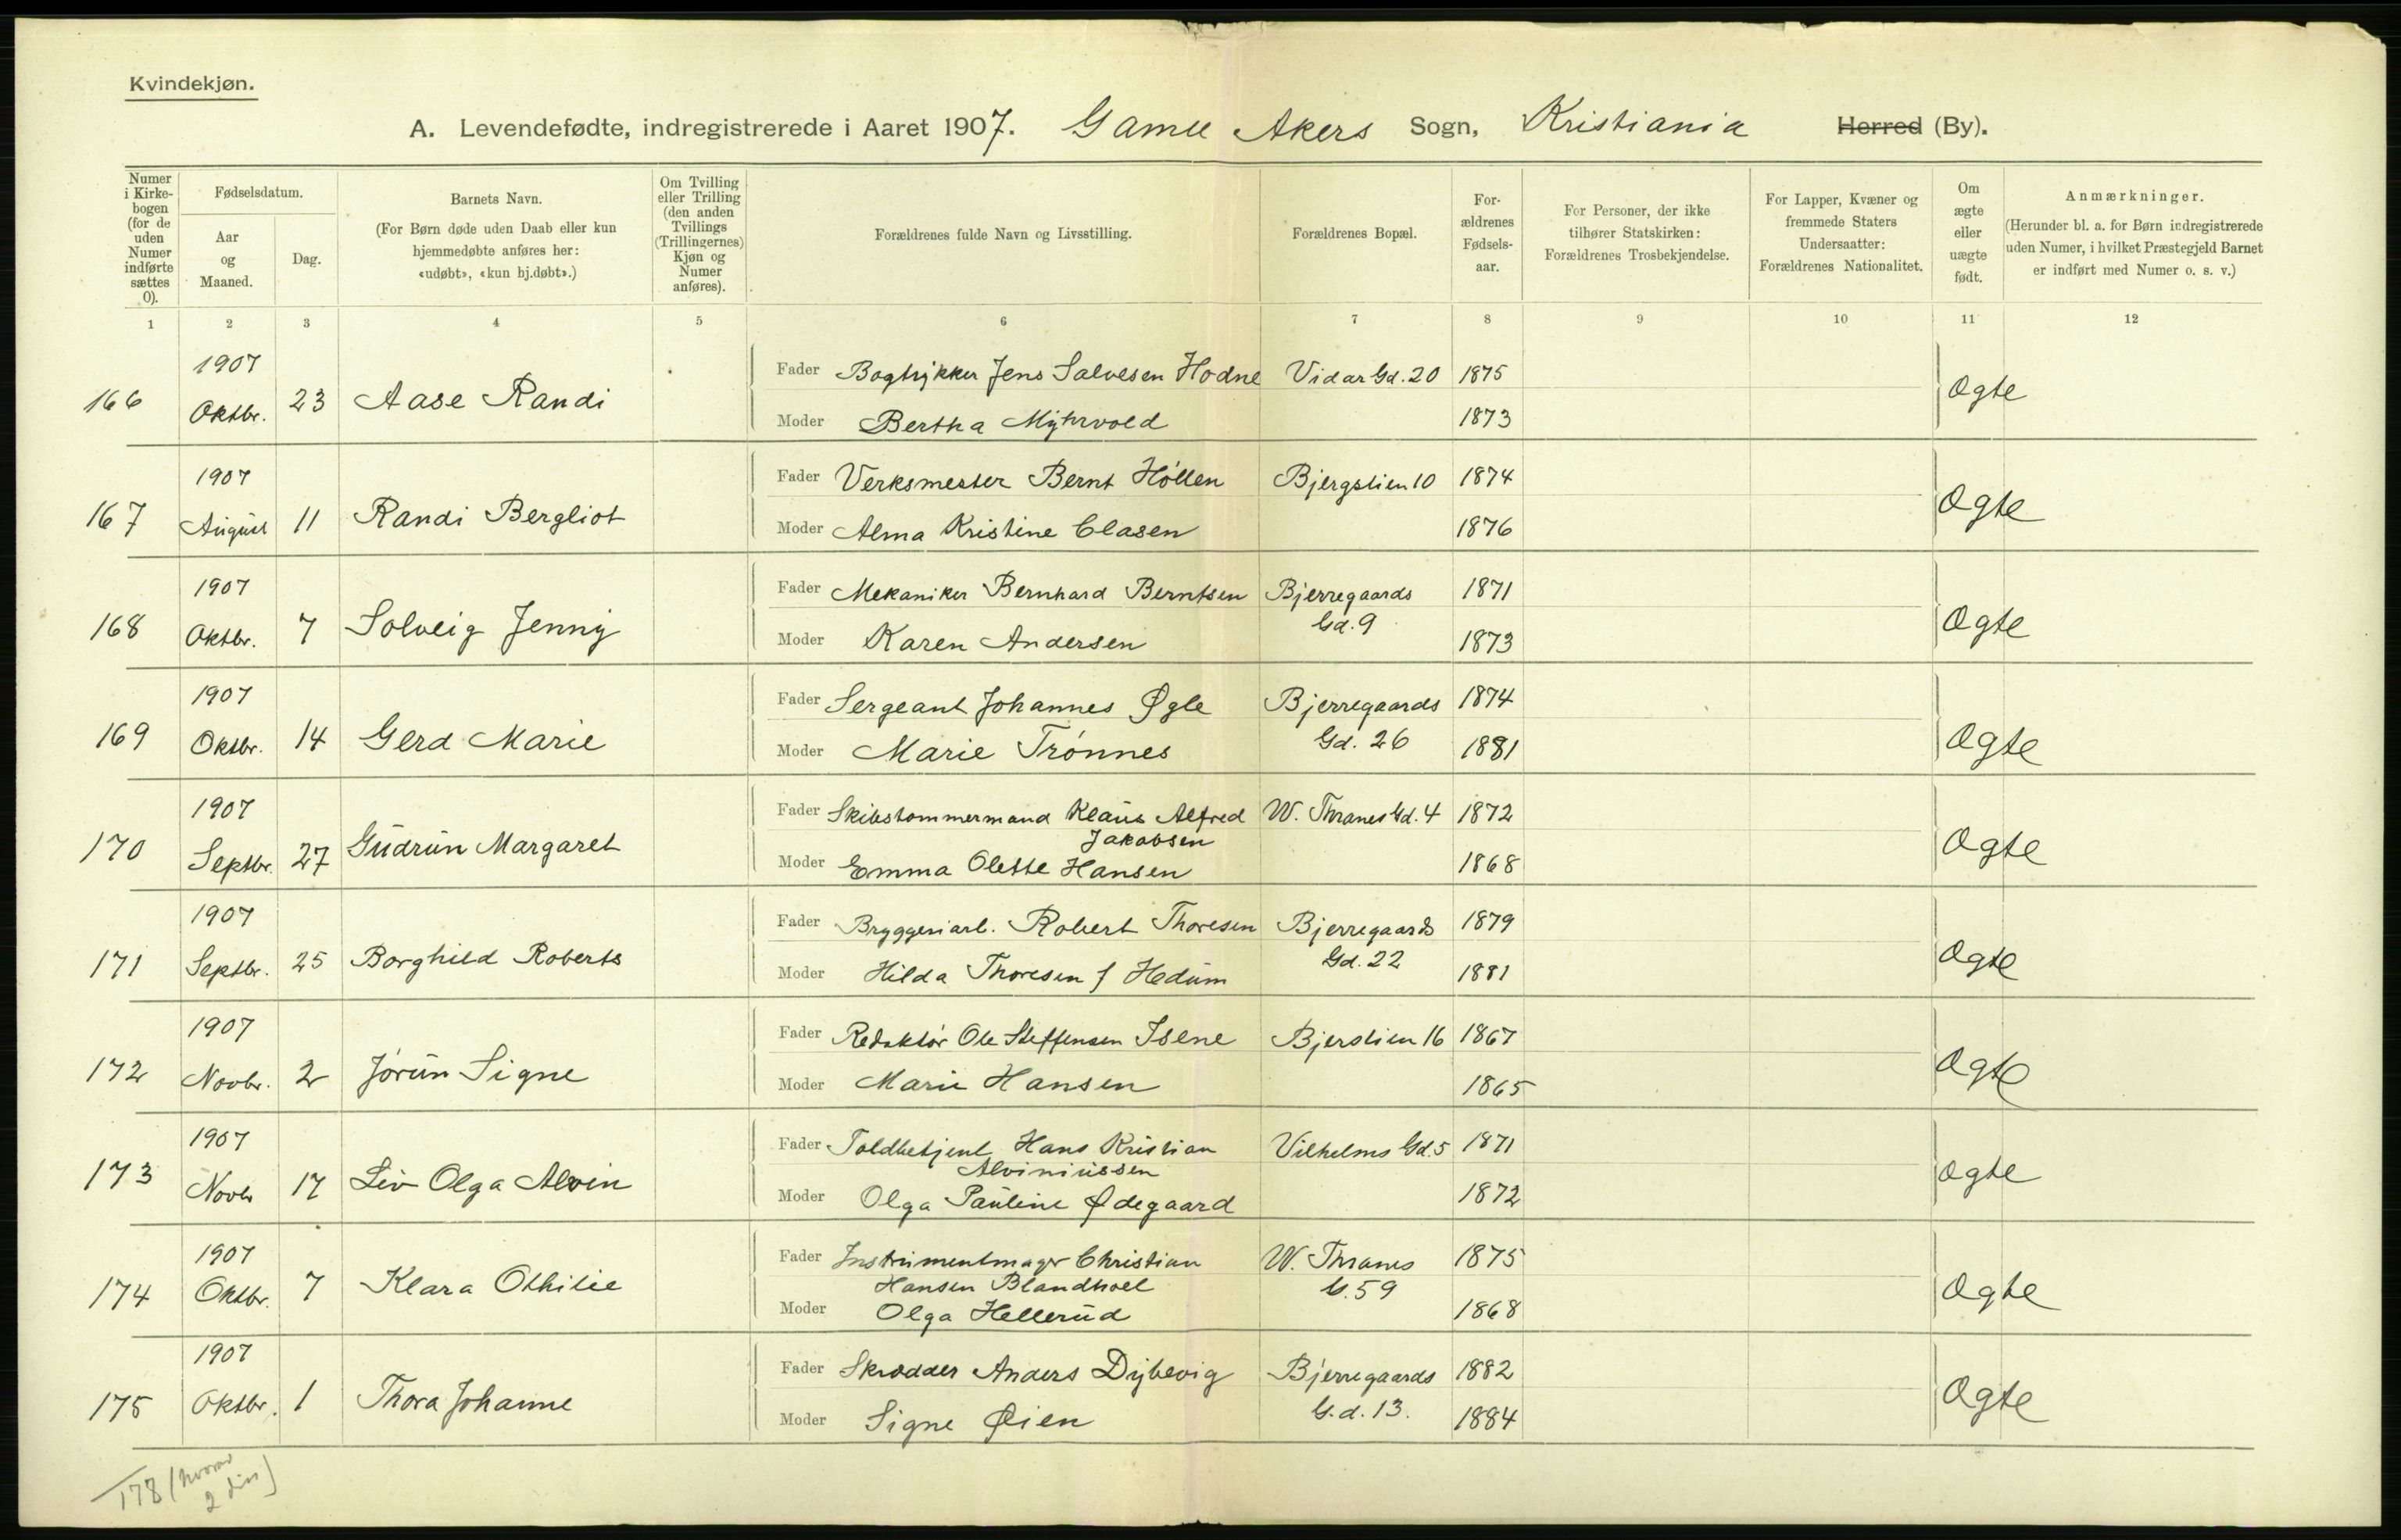 Kvindekjøn.
A. Levendefødte, indregistrerede i Aaret 1907. Gamle Akers Sogn, Kristiania Herred (By).
Numer i Kirkebogen (for de uden Numer indførte sættes 0).
Fødselsdatum.
Aar og Maaned.
Dag.
Barnets Navn.
(For Børn døde uden Daab eller kun
hjemmedøbte anføres her:
«udøbt», «kun hj.døbt».)
Om Tvilling
eller Trilling
(den anden
Tvillings
(Trillingernes)
Kjøn og
Numer
anføres).
Forældrenes fulde Navn og Livsstilling.
Forældrenes Bopæl.
For-
ældrenes
Fødsels-
aar.
For Personer, der ikke
tilhører Statskirken:
Forældrenes Trosbekjendelse.
For Lapper, Kvæner og
fremmede Staters
Undersaatter:
Forældrenes Nationalitet.
Om
ægte
eller
uægte
født.
Anmærkninger.
(Herunder bl. a. for Børn indregistrerede
uden Numer, i hvilket Præstegjeld Barnet
er indført med Numer o. s. v.)
1 2 3 4 5 6 7 8 9 10 11 12
1907 Fader Bogtrykker Jens Salvesen Hodne Vidar Gd. 20 1875
166 Oktbr. 23 Aase Randi Ægte
Moder Bertha Myhrvold 1873
1907 Fader Verksmester Bernt Hóllen Bjergstien 10 1874
167 August 11 Randi Bergliot Ægte
Moder Alma Kristine Clasen 1876
1907 Fader Mekaniker Bernhard Berntsen Bjerregaards 1871
168 Oktbr. 7 Solveig Jenny Gd. 9 Ægte
Moder Karen Andersen 1873
1907 Fader Sergeant Johannes Øgle Bjerregaards 1874
169 Oktbr. 14 Gerd Marie Gd. 26 Ægte
Moder Marie Trónnes 1881
1907 Fader Skibstommermand Klaus Alfred W. Thranes Gd. 4 1872
Jakobsen
170 Septbr. 27 Gudrun Margaret Ægte
Moder Emma Olette Hansen 1868
1907 Fader Bryggeriarb. Robert Thoresen Bjerregaards 1879
171 Septbr. 25 Borghild Roberts Gd. 22 Ægte
Moder Hilda Thoresen f Hedum 1881
1907 Fader Redaktór Ole Steffensen Isene Bjerstien 16 1867
172 Novbr. 2 Jórun Signe Ægte
Moder Marie Hansen 1865
1907 Fader Toldbetjent Hans Kristian Vilhelms Gd. 5 1871
Alviniussen
173 Novbr 17 Liv Olga Alvin Ægte
Moder Olga Pauline Ødegaard 1872
1907 Fader Instrumentmager Christian W. Thranes 1875
Hansen Blandhoel G. 59
174 Oktbr. 7 Klara Othilie Ægte
Moder Olga Hellerud 1868
1907 Fader Skrædder Anders Dybevig Bjerregaards 1882
175 Oktbr. 1 Thora Johanne G.d. 13. Ægte
Moder Signe Øien 1884
178 (hvorav
2